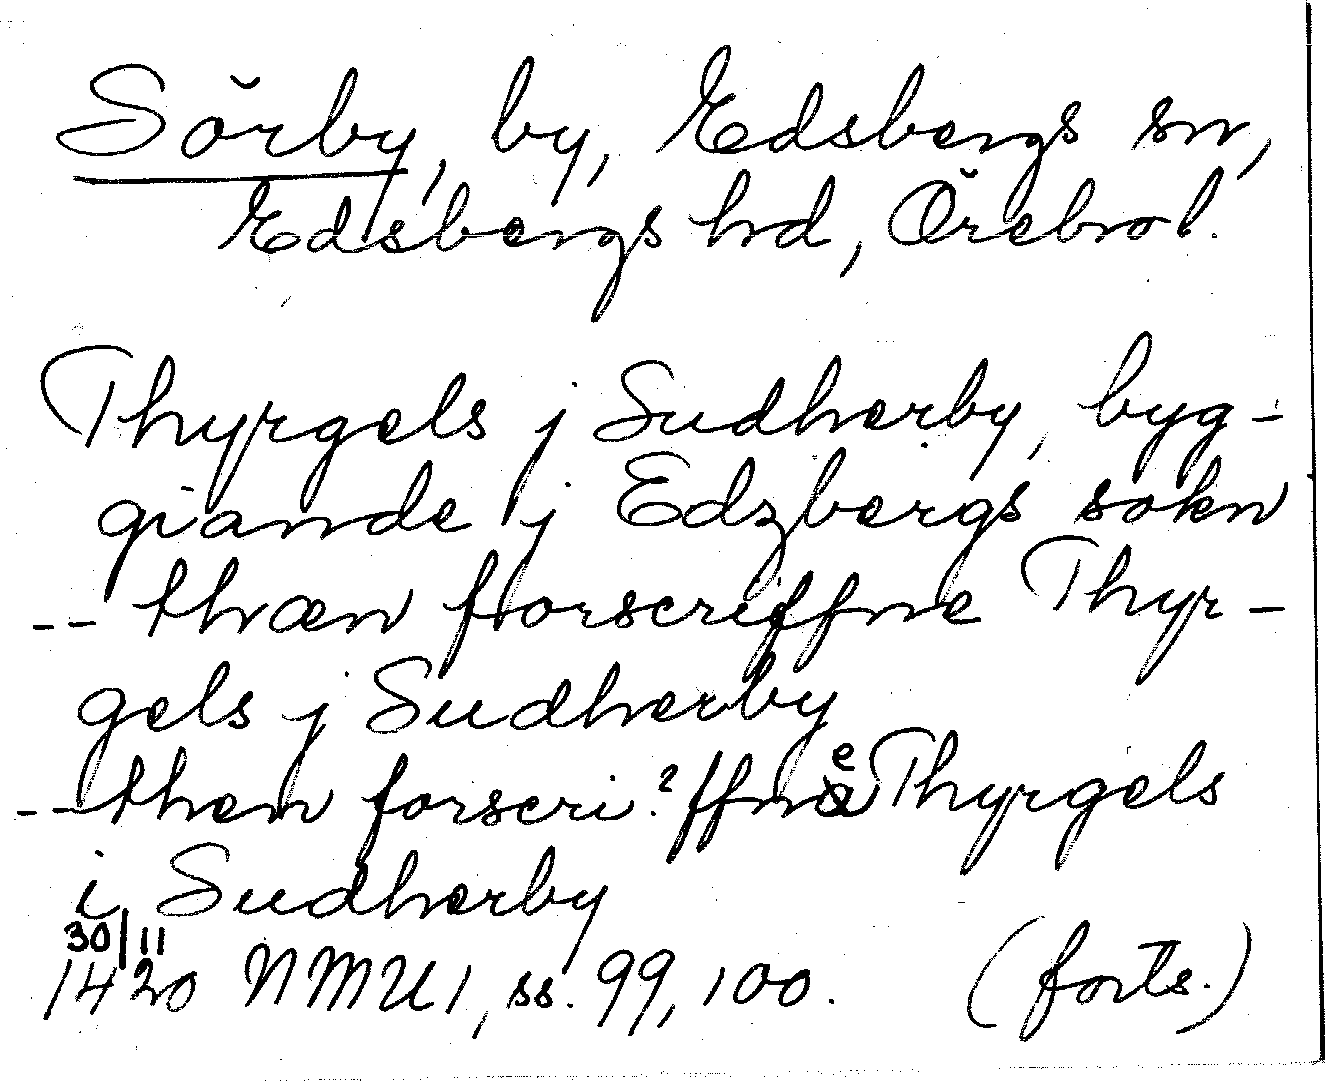 Sörby, by, Edsbergs sn,
Edsbergs hd, Örebro l.
Thyrgels j Sudherby, byg-
giande j Edzbergs sokn
-- thæn fforscriffne Thyr-
gels j Sudherby
-- then forscri?ffne Thyrgels
i Sudherby
30/11
1420 NMU 1, ss. 99, 100. (forts.)